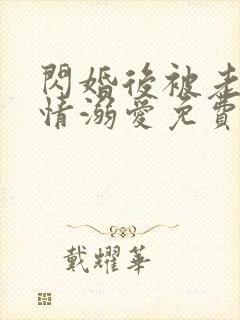 閃婚後被老
情溺愛免費
戴耀華